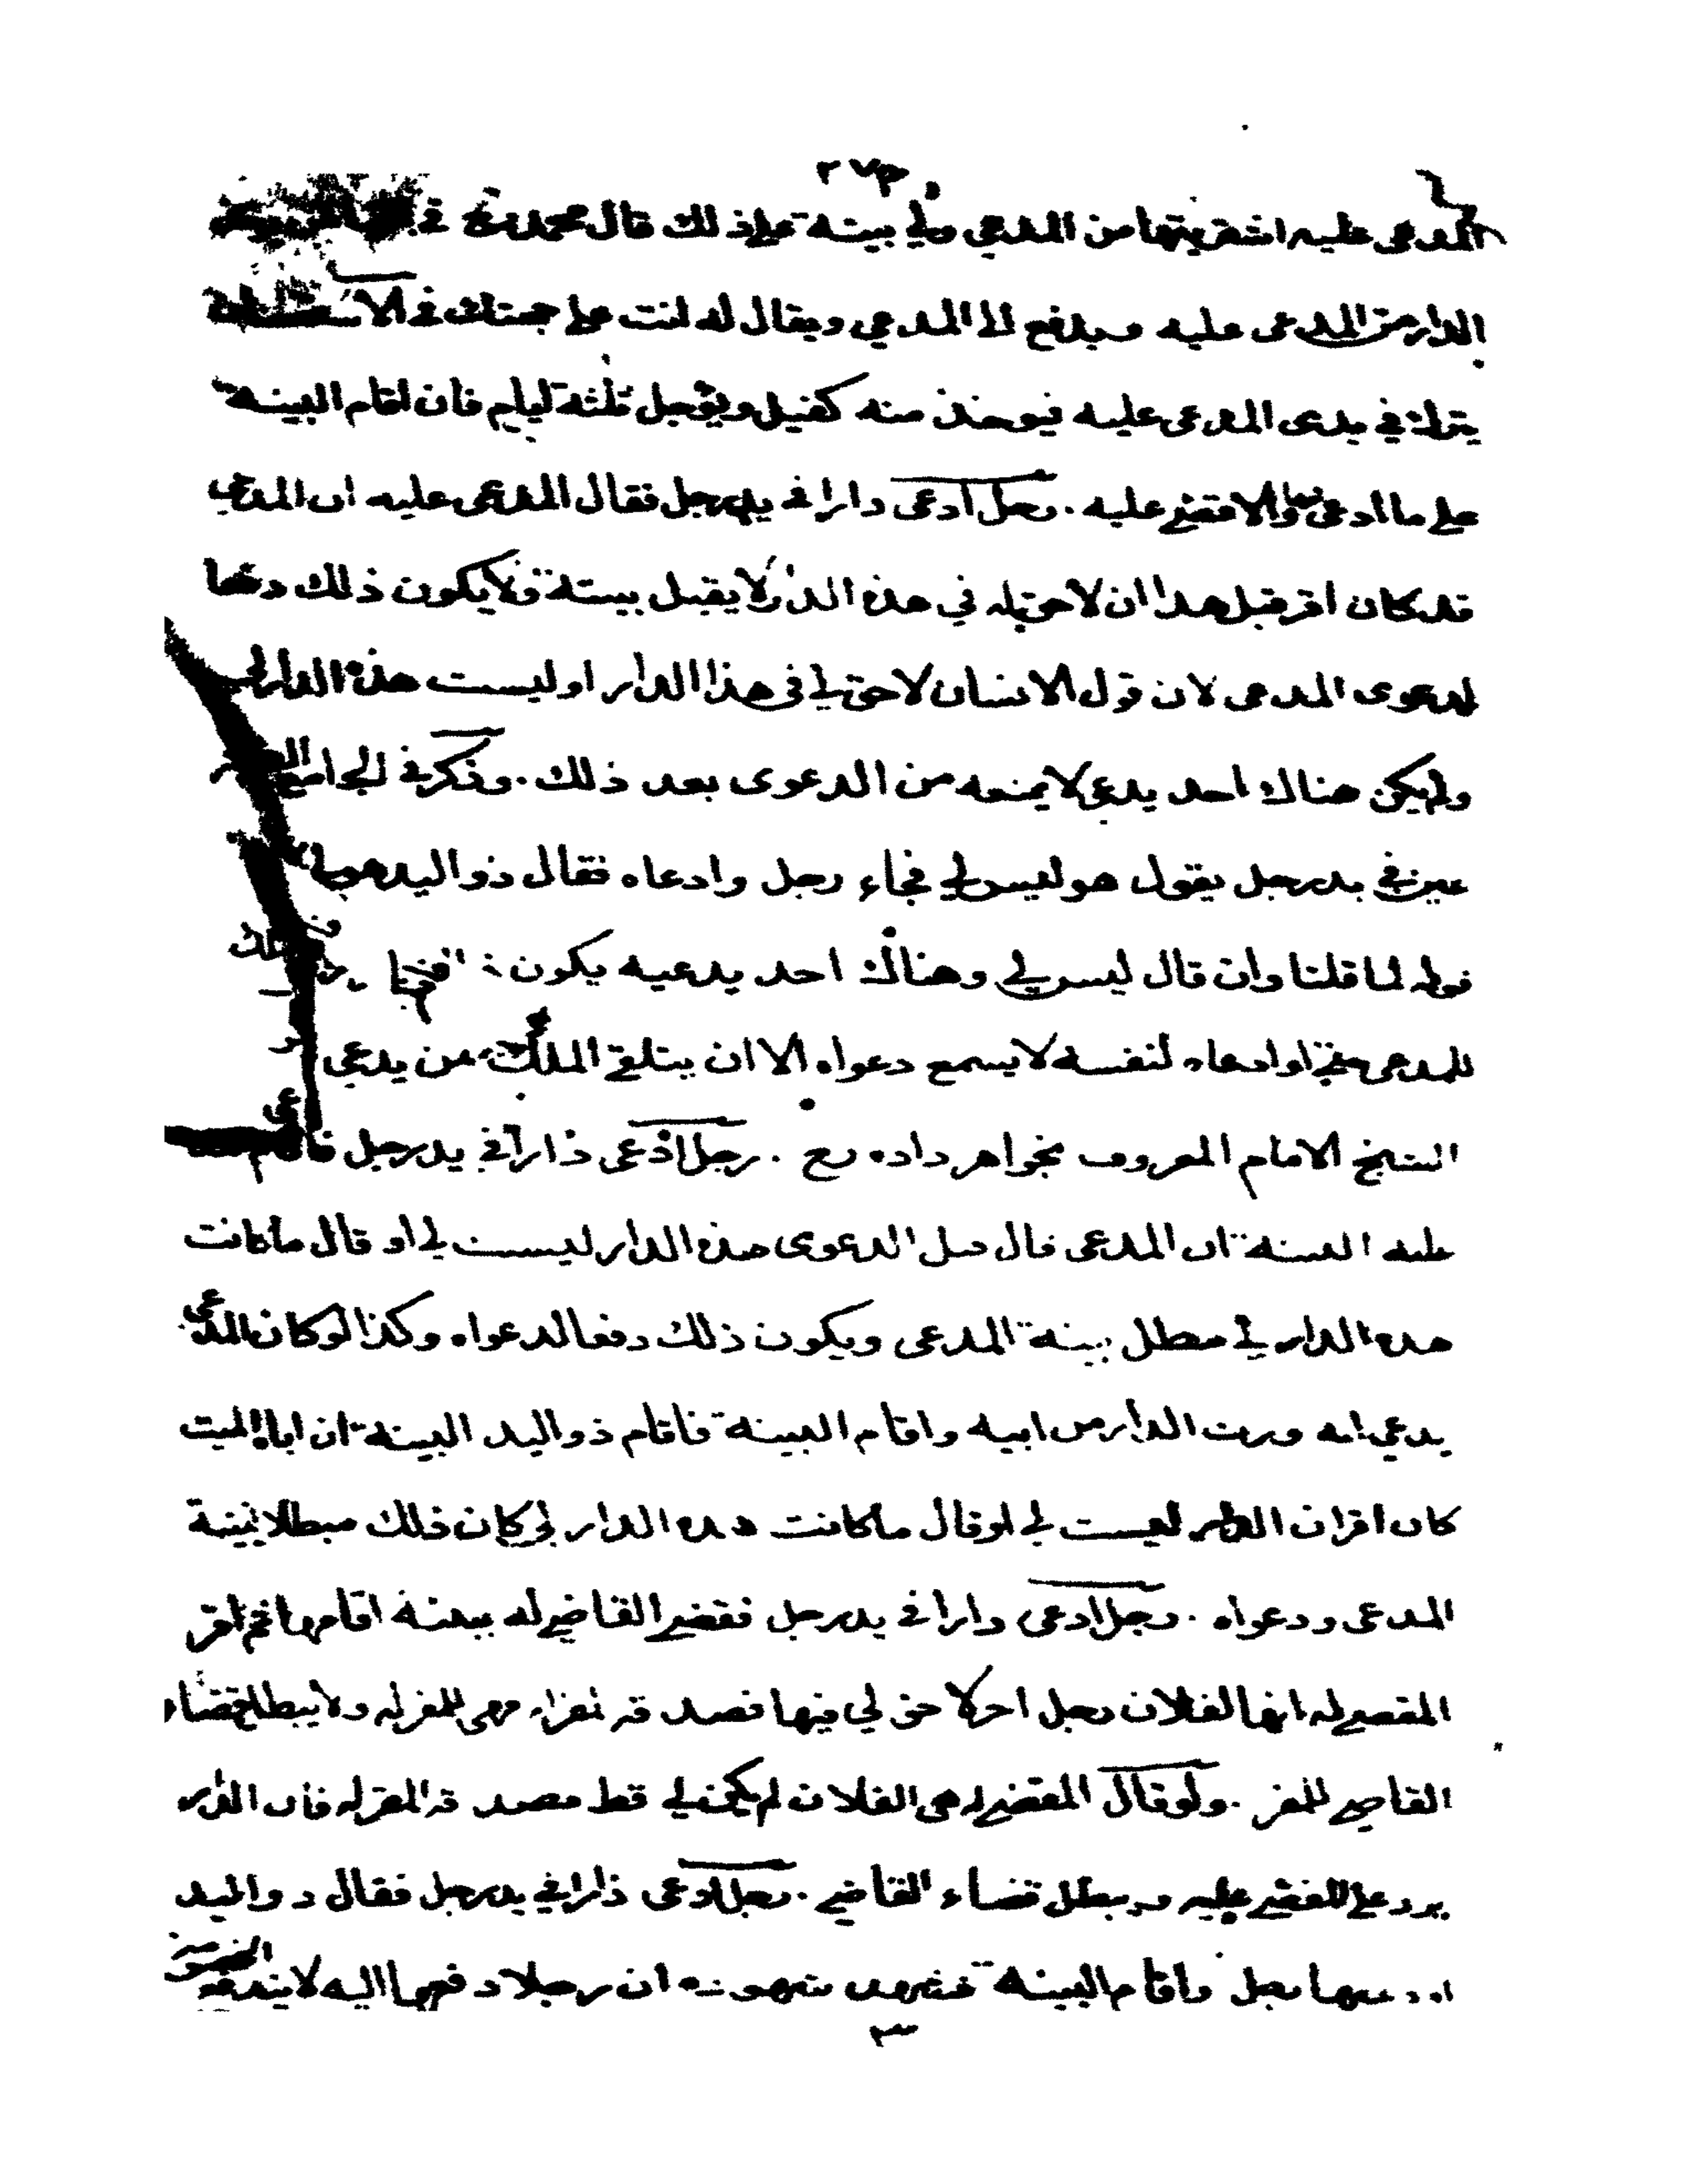 ٢٧٣
المدعى عليه اشتريتها من المدعي ولي بينة على ذلك قال محمد رح في
الدار من المدعى عليه ويدفع الى المدعي ويقال له انت على حجتك في الاستحسان
يترك في يدى المدعى عليه فيوخذ منه كفيل ويؤجل ثلثة ايام فان اقام البينة
على ما ادعى والا قضى عليه . رجل ادعى دارا في يد رجل فقال المدعى عليه ان المدعي
قد كان اقر قبل هذا ان لا حق له في هذه الدار لا يقبل بينته ولا يكون ذلك دفعا
لدعوى المدعى لان قول الانسان لا حق لي في هذا الدار او ليست هذه الدار لي
ولم يكن هناك احد يدعي لا يمنعه من الدعوى بعد ذلك . وذكر في الجامع
عين في يد رجل يقول هو ليس لي فجاء رجل وادعاه فقال ذو اليد هو لي
قوله لما قلنا وان قال ليس لي وهناك احد يدعيه يكون
للمدعى حتى لو ادعاه لنفسه لا يسمع دعواه الا ان يتلقى الملك من يدعي
الشيخ الامام المعروف بخواهر داده رح . رجل ادعى دارا في يد رجل فاقام
عليه البينة ان المدعى قال قبل الدعوى هذه الدار ليست لي او قال ما كانت
هذه الدار لي مبطل بينة المدعى ويكون ذلك دفعا لدعواه وكذا لو كان المدعى
يدعي انه ورث الدار من ابيه واقام البينة فاقام ذو اليد البينة ان اباه الميت
كان اقر ان الدار ليست لي او قال ما كانت هذه الدار لي كان ذلك مبطلا لبينة
المدعى ودعواه . رجل ادعى دارا في يد رجل فقضى القاضي له ببينة اقامها ثم اقر
المقضي له انها لفلان رجل اخر لا حق لي فيها فصدقه المقر له فهى للمقر له ولا يبطل قضاء
القاضي للمقر . ولو قال المقضي له هى لفلان لم يكن لي قط فصدقه المقر له فان الدار
يرد على المقضي عليه ويبطل قضاء القاضي . رجل ادعى دارا في يد رجل فقال ذو اليد
رجل واقام البينة فشهد شهوده ان رجلا دفعها اليه لا يندفع